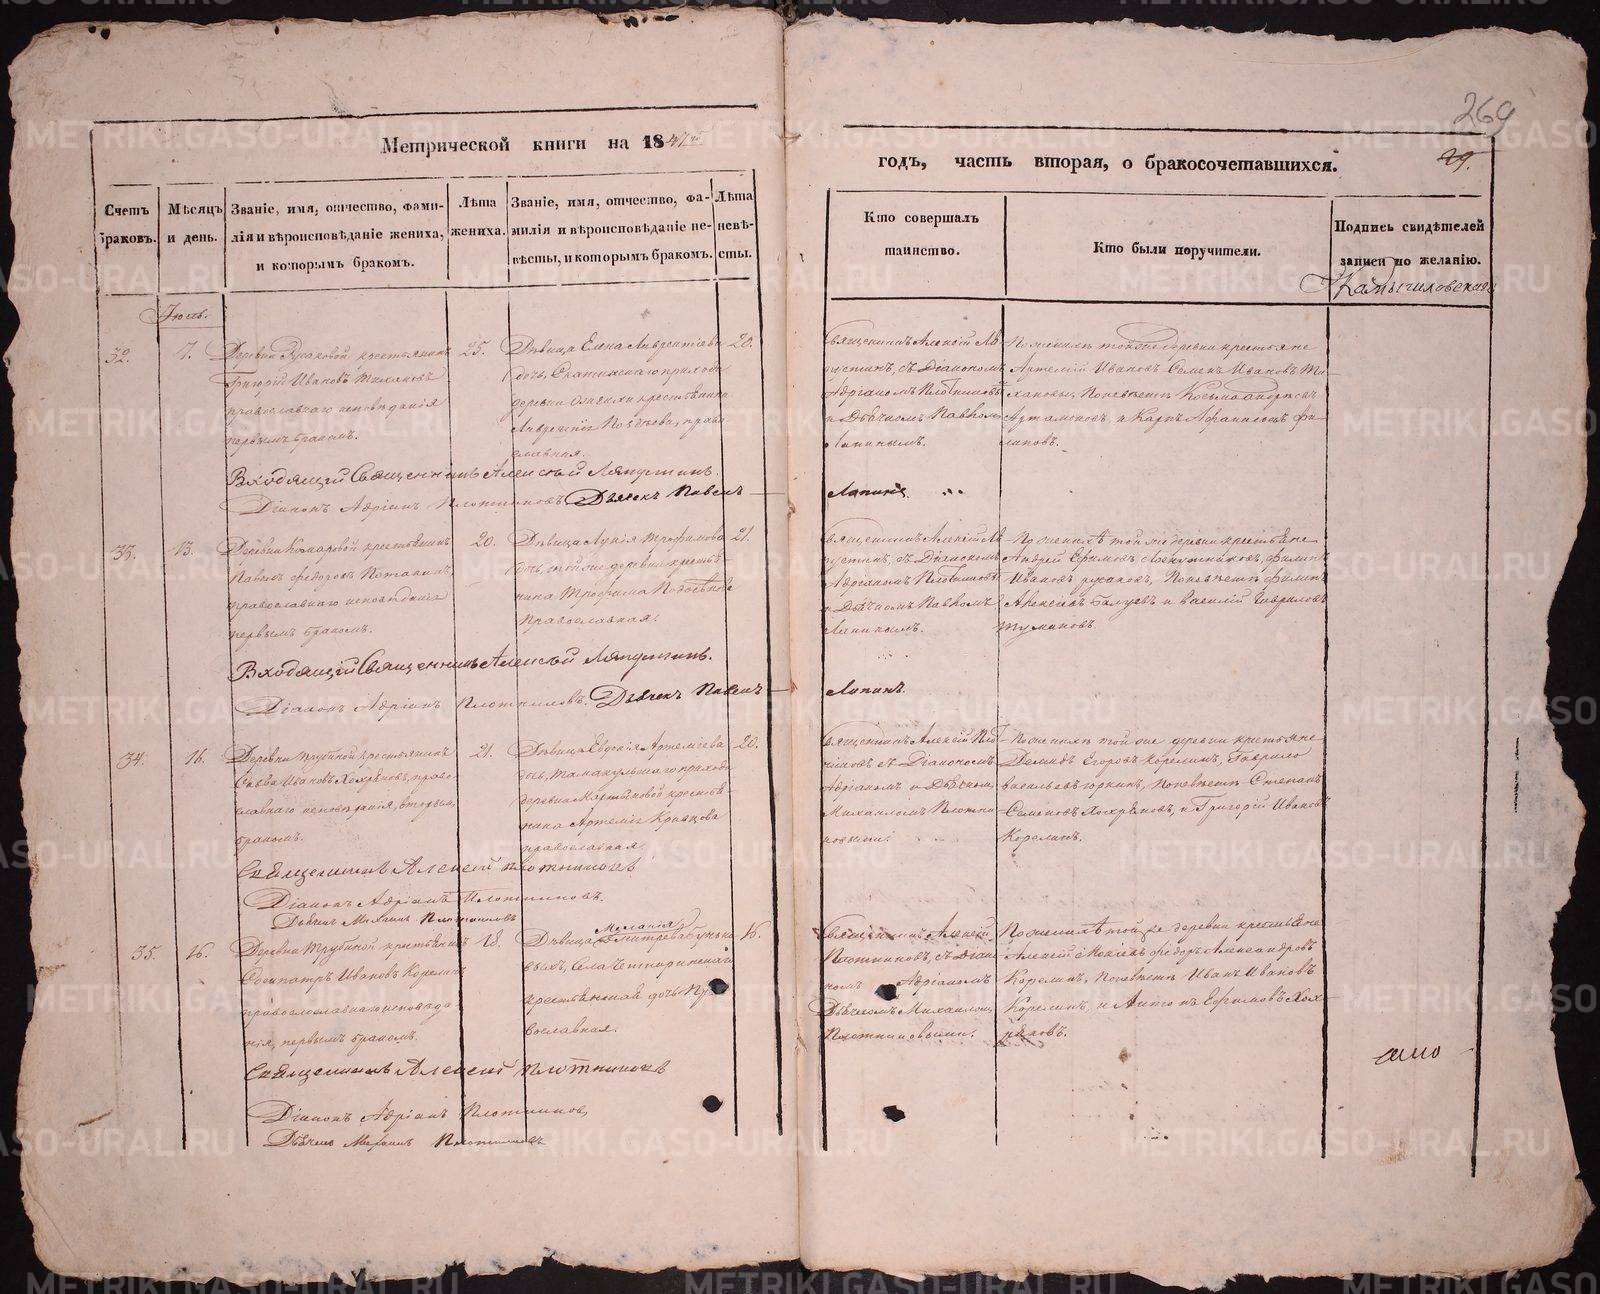 269
29.
Метрической книги на 1847й
годъ, часть вторая, о бракосочетавшихся.
Счетъ браковъ.
Мѣсяцъ и день.
Званіе, имя, отчество, фами-
лія и вѣроисповѣданіе жениха,
и которымъ бракомъ.
Лѣта
жениха.
Званіе, имя, отчество, фа-
милія и вѣроисповѣданіе не-
вѣсты, и которымъ бракомъ.
Лѣта
невѣ-
сты.
Кто совершалъ
таинство.
Кто были поручители.
Подпись свидѣтелей
записи по желанію.
Іюль.
32.
7.
Деревни Русаковой крестьянинъ
Григорій Ивановъ Тихановъ
православнаго исповѣданія
первымъ бракомъ.
25.
Дѣвица Елена Лаврентіева
дочь, Скатинскаго прихода
деревни крестьянина
Лаврентія православная.
20.
Священникъ Алексій Ля-
пустинъ, съ Діакономъ
Адріаномъ Плотниковымъ
и Дьячкомъ Павломъ
Лапинымъ.
По женихѣ той же деревни крестьяне
Артемій Ивановъ Семенъ Ивановъ Ти-
хановы, По невѣстѣ Козьма Андреевъ
и Карпъ Афанасьевъ Фи-
липовъ.
Входящій Священникъ Алексѣй Ляпустинъ.
Діаконъ Адріанъ Плотниковъ Дьячекъ Павелъ
Лапинъ.
33.
13.
Деревни Комаровой крестьянинъ
Павелъ Федоровъ Потанинъ,
православнаго исповѣданія
первымъ бракомъ.
20.
Дѣвица Лукія Трофимова
дочь, той же деревни кресть-
янина Трофима
Православная.
21.
Священникъ Алексій Ля-
пустинъ, съ Діакономъ
Адріаномъ Плотниковымъ
и Дьячкомъ Павломъ
Лапинымъ.
По женихѣ той же деревни крестьяне
Андрей Ефимовъ Лоскутниковъ, Филипъ
Ивановъ Русаковъ, По невѣстѣ Филипъ
Алексіевъ Балуевъ и Василій Гавриловъ
Тумановъ.
Входящій Священникъ Алексѣй Ляпустинъ.
Діаконъ Адріанъ Плотниковъ. Дьячекъ Павелъ
Лапинъ.
34.
16.
Деревни Трубиной крестьянинъ
Савва Ивановъ Хохряковъ, право-
славнаго исповѣданія, вторымъ
бракомъ.
21.
Дѣвица Евдокія Артеміева
дочь, Тамакульскаго прихода
деревни Мартыновой крестья-
нина Артемія Кравцова
православная.
20.
Священникъ Алексій Плот-
никовъ съ Діакономъ
Адріаномъ и Дьячкомъ
Михаиломъ Плотни-
ковыми.
По женихѣ той же деревни крестьяне
Демидъ Егоровъ Корелинъ, Гаврило
Васильевъ Юркинъ, По невѣстѣ Степанъ
Семеновъ Хохряковъ, и Григорій Ивановъ
Корелинъ.
Священникъ Алексѣй Плотниковъ
Діаконъ Адріанъ Плотниковъ.
Дьячекъ Михаилъ Плотниковъ
35.
16.
Деревни Трубиной крестьянинъ
Сосипатръ Ивановъ Корелинъ
православнаго исповѣда-
нія, первымъ бракомъ.
18.
Меланія
Дѣвица Димитрева
Села
крестьянская дочь Пра-
вославная.
16.
Священникъ Алексій
Плотниковъ, съ Діако-
номъ Адріаномъ
Дьячкомъ Михаиломъ
Плотниковыми.
По женихѣ той же деревни крестьяне
Алексій Моисіевъ Федоръ Александровъ
Корелины, По невѣстѣ Иванъ Ивановъ
Корелинъ, и Антонъ Ефимовъ Хох-
ряковъ.
Священникъ Алексѣй Плотниковъ
Діаконъ Адріанъ Плотниковъ,
Дьячекъ Михаилъ Плотниковъ
METRIKI.GASO-URAL.RU